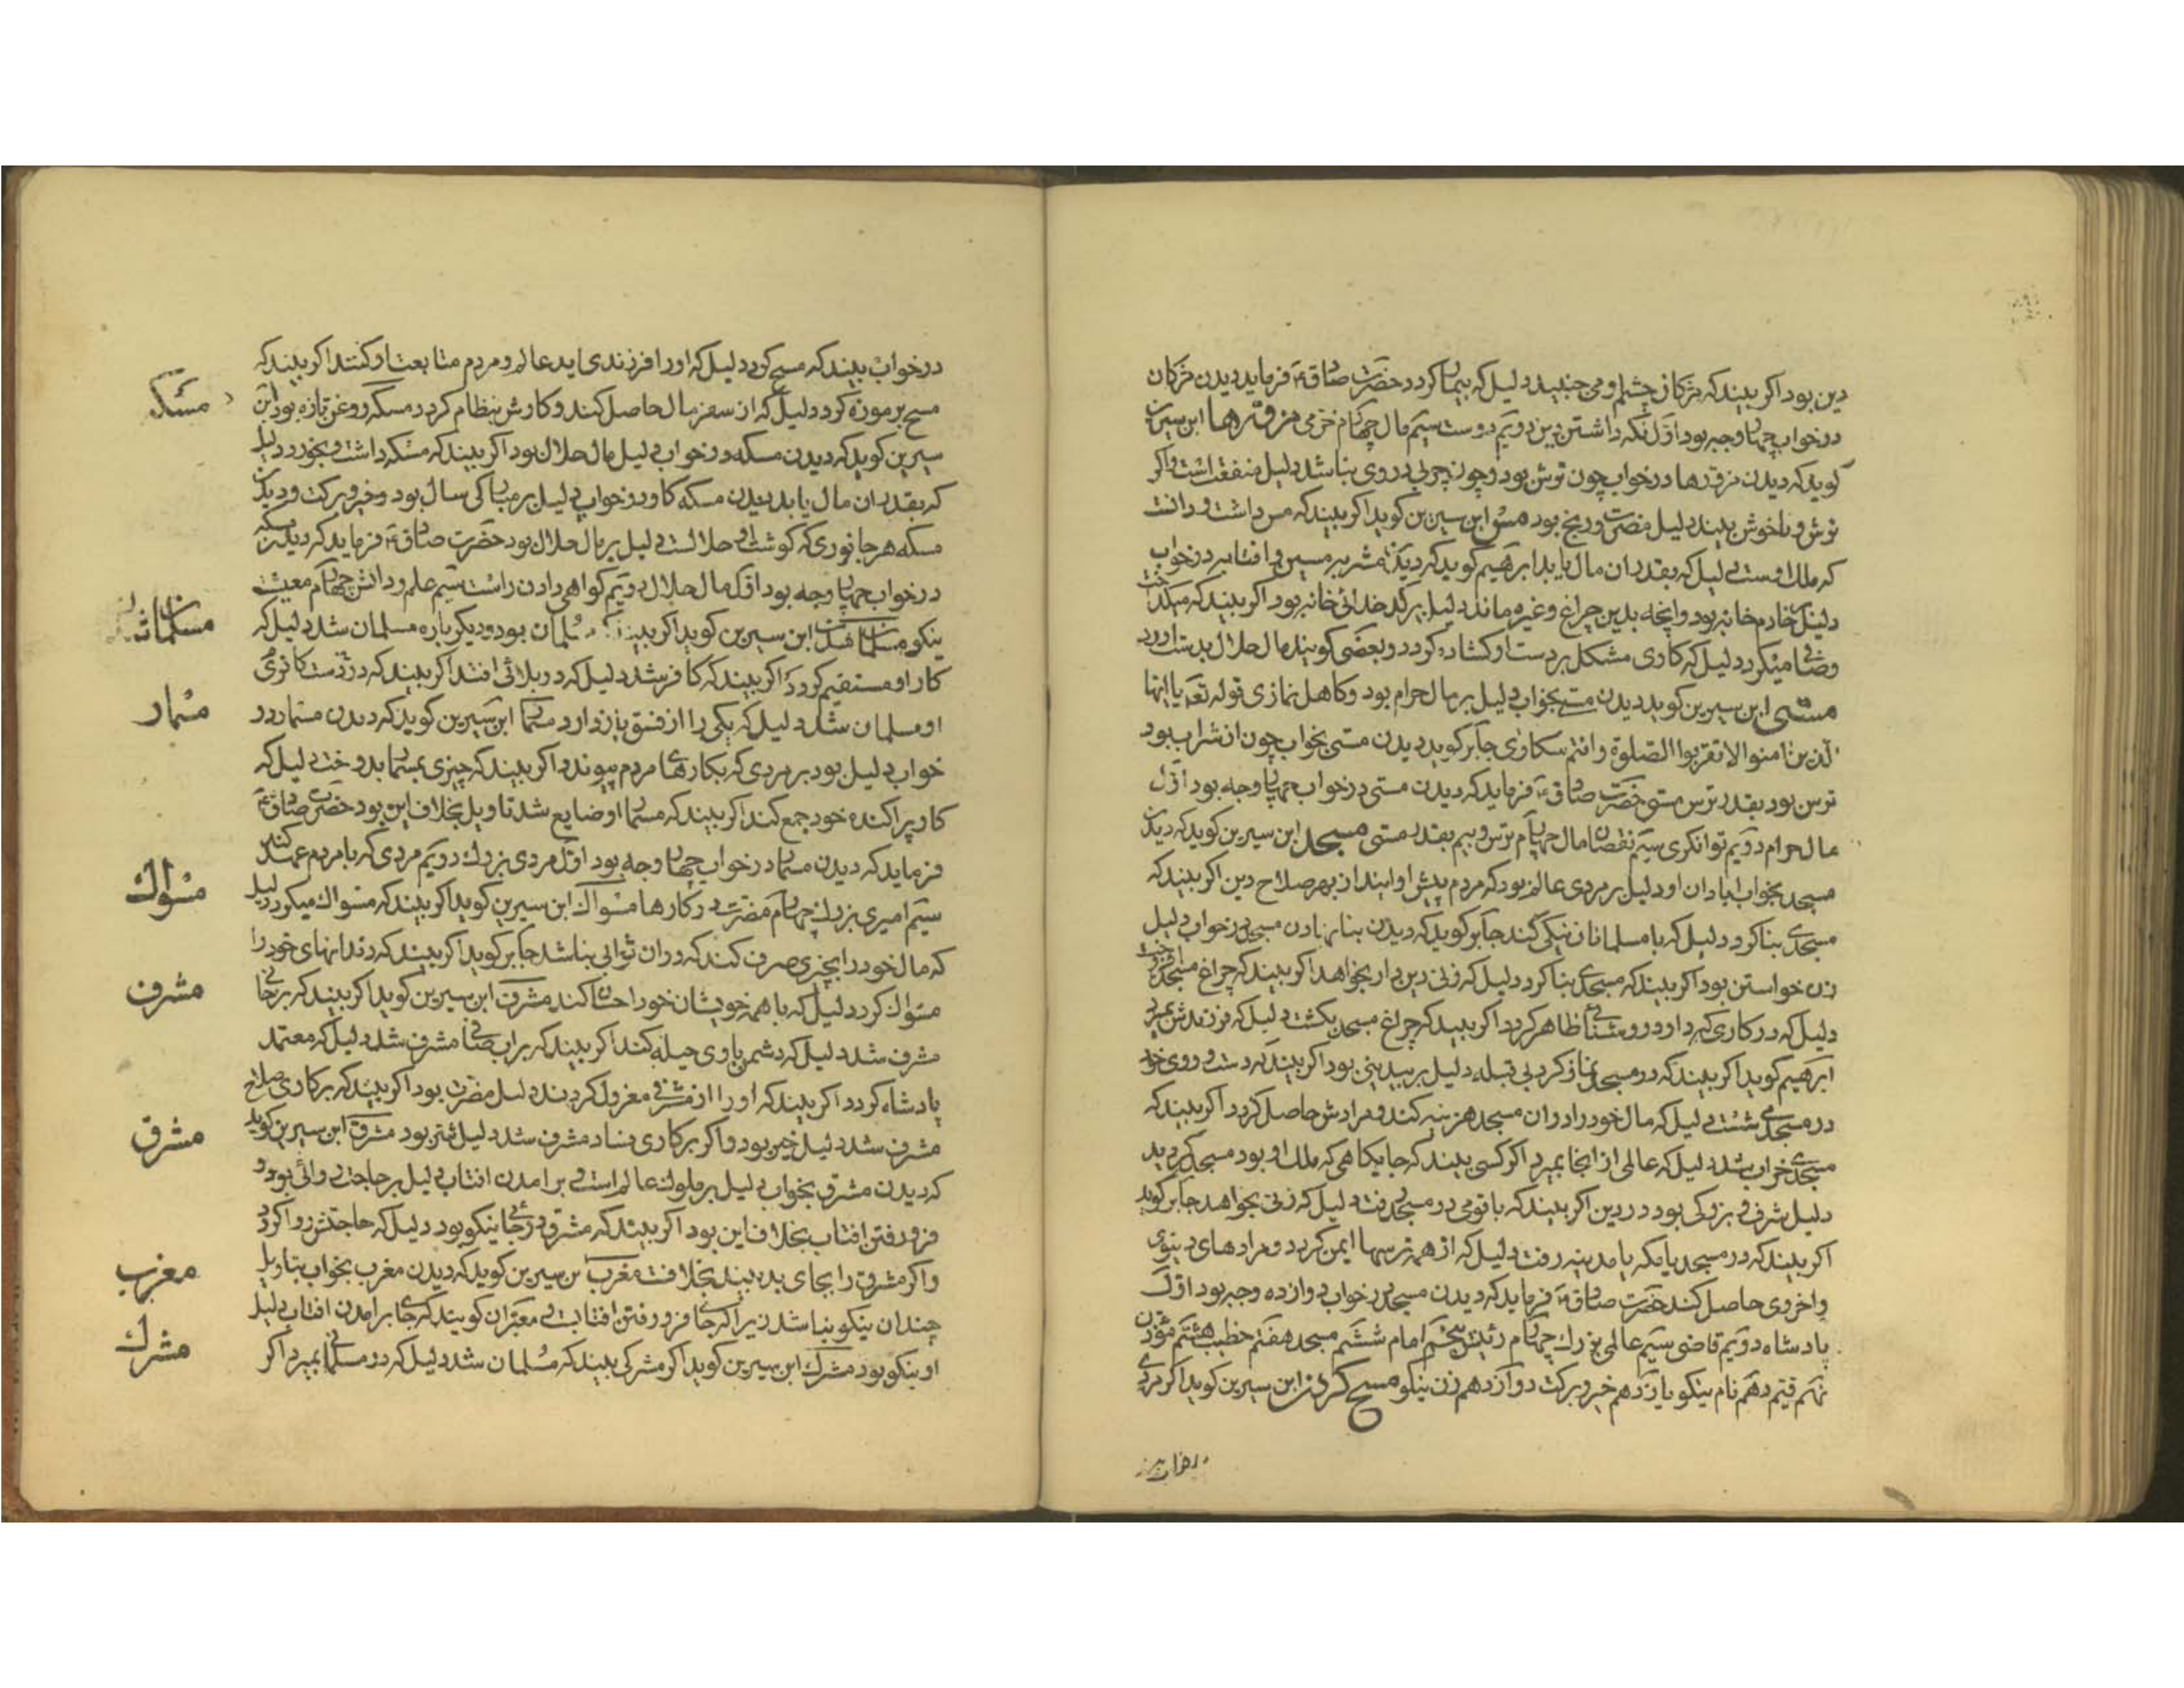 دین بود اکر بیند که مژکان چشم او می جنبید دلیل که بیمار کردد حضرت صادق ع فرماید دیدن مژکان
درخواب چهار وجه بود اوّل نکه داشتن دین دویم دوست سیّم مال چهارم خرمی مزورها ابن سیرین
کوید که دیدن مزورها درخواب چون ترش بود و چون چربی در وی نباشد دلیل منفعت است و اکر
ترش و ناخوش بیند دلیل مضرت و رنج بود مس ابن سیرین کوید اکر بیند که مس داشت و دانست
که ملک اوست دلیل که بقدر ان مال یابد ابرهیم کوید که دیدن مشربه مسین و افتابه درخواب
دلیل خادم خانه بود و انچه بدین چراغ و غیره ماند دلیل بر کدخدائی خانه بود اکر بیند که مس میکداخت
و صافی میکرد دلیل که کاری مشکل بر دست او کشاده کردد و بعضی کویند مال حلال بدست اورد
مستی ابن سیرین کوید دیدن مستی بخواب دلیل بر مال حرام بود و کاهل نمازی قوله تعه یا ایها
الذین امنوا لا تقربوا الصلوة و انتم سکاری جابر کوید دیدن مستی بخواب چون از شراب بود
ترس بود بقدر ترس مستی حضرت صادق ع فرماید که دیدن مستی درخواب چهار وجه بود اوّل
مال حرام دویم توانکری سیّم نقصان مال چهارم ترس و بیم بقدر مستی مسجد ابن سیرین کوید که دیدن
مسجد بخواب ابادان او دلیل بر مردی عالم بود که مردم پیش او ایند از بهر صلاح دین اکر بیند که
مسجدی بنا کرد دلیل که با مسلمانان نیکی کند جابر کوید که دیدن بنا نهادن مسجد درخواب دلیل
زن خواستن بود اکر بیند که مسجدی بنا کرد دلیل که زنی دین دار بخواهد اکر بیند که چراغ مسجد افروخت
دلیل که در کاری که دارد روشنائی ظاهر کردد اکر بیند که چراغ مسجد بکشت دلیل که فرزندش بمیرد
ابرهیم کوید اکر بیند که در مسجد نماز کرد بی قبله دلیل بر بیدینی بود اکر بیند که دست و روی خود
در مسجد می شست دلیل که مال خود را در ان مسجد هزینه کند و مرادش حاصل کردد اکر بیند که
مسجدی خراب شد دلیل که عالمی از انجا بمیرد اکر کسی بیند که جایکاهی که ملک او بود مسجد کردید
دلیل شرف و بزرکی بود در دین اکر بیند که با قومی در مسجد رفت دلیل که زنی بخواهد جابر کوید
اکر بیند که در مسجد یا مکه یا مدینه رفت دلیل که از همه ترسها ایمن کردد و مرادهای دینوی
و اخروی حاصل کند حضرت صادق ع فرماید که دیدن مسجد درخواب دوازده وجه بود اوّل
پادشاه دویم قاضی سیّم عالمی بزرک چهارم رئیس پنجم امام ششم مسجد هفتم خطیب هشتم مؤذن
نهم قیّم دهم نام نیکو یازدهم خیر و برکت دوازدهم زن نیکو مسح کردن ابن سیرین کوید اکر مردی
درخواب بیند که مسح کرد دلیل که او را فرزندی اید عالم و مردم متابعت او کنند اکر بیند که
مسح بر موزه کرد دلیل که از سفر مال حاصل کند و کارش بنظام کردد مسکه روغن تازه بود ابن
مسکه
سیرین کوید که دیدن مسکه درخواب دلیل مال حلال بود اکر بیند که مسکه داشت و بخورد دلیل
که بقدر ان مال یابد دیدن مسکه کاو درخواب دلیل بر مبارکی سال بود و خیر و برکت و دیدن
مسکه هر جانوری که کوشت او حلالست دلیل بر مال حلال بود حضرت صادق ع فرماید که دیدن مسکه
درخواب چهار وجه بود اوّل مال حلال دویم کواهی دادن راست سیّم علم و دانش چهارم معیشت
نیکو مسلمان شدن ابن سیرین کوید اکر بیند که مسلمان بود و دیکر باره مسلمان شد دلیل که
مسلمان شدن
کار او مستقیم کردد اکر بیند که کافر شد دلیل که در بلائی افتد اکر بیند که در دست کافری
او مسلمان شد دلیل که یکی را از فسق باز دارد مسمار ابن سیرین کوید که دیدن مسمار در
مسمار
خواب دلیل بود بر مردی که بکارهای مردم پیوندد اکر بیند که چیزی بمسمار بدوخت دلیل که
کار پراکنده خود جمع کند اکر بیند که مسمار او ضایع شد تاویل بخلاف این بود حضرت صادق ع
فرماید که دیدن مسمار درخواب چهار وجه بود اوّل مردی بزرک دویم مردی که با مردم عمل کند
سیّم امیری بزرک چهارم مضرت در کارها مسواک ابن سیرین کوید اکر بیند که مسواک میکرد دلیل
مسواک
که مال خود را بچیزی صرف کند که در ان ثوابی نباشد جابر کوید اکر بیند که دندانهای خود را
مسواک کرد دلیل که با همه خویشان خود احسان کند مشرف ابن سیرین کوید اکر بیند که بر جائی
مشرف
مشرف شد دلیل که دشمن با وی حیله کند اکر بیند که بر اب صافی مشرف شد دلیل که معتمد
پادشاه کردد اکر بیند که او را از مشرفی معزول کردند دلیل مضرت بود اکر بیند که بر کاری صلاح
مشرف شد دلیل خیر بود و اکر بر کاری فساد مشرف شد دلیل شر بود مشرق ابن سیرین کوید
مشرق
که دیدن مشرق بخواب دلیل بر ملوک عالم است و بر امدن افتاب دلیل بر حاجت روائی بود و
فرو رفتن افتاب بخلاف این بود اکر بیند که مشرق در جائی نیکو بود دلیل که حاجتش روا کردد
و اکر مشرق را بجای بد بیند بخلافست مغرب ابن سیرین کوید که دیدن مغرب بخواب بتاویل
مغرب
چندان نیکو نباشد زیرا که جای فرو رفتن افتابست و معبّران کویند که جای بر امدن افتاب دلیل
او نیکو بود مشرک ابن سیرین کوید اکر مشرکی بیند که مسلمان شد دلیل که در مسلمانی بمیرد اکر
مشرک